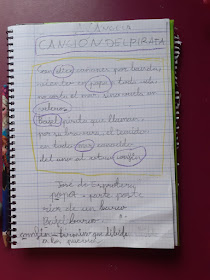 CANCIÓN DEL PIRATA
Con diez cañones por banda,
viento en popa a toda vela
no corta el mar, sino vuela un
velero
Bajel pirata que llaman
por su bravura, el temido
en todo mar conocido
del uno al otro confín
José de Espronceda
popa = parte poste
rior de un barco
Bajel = barco